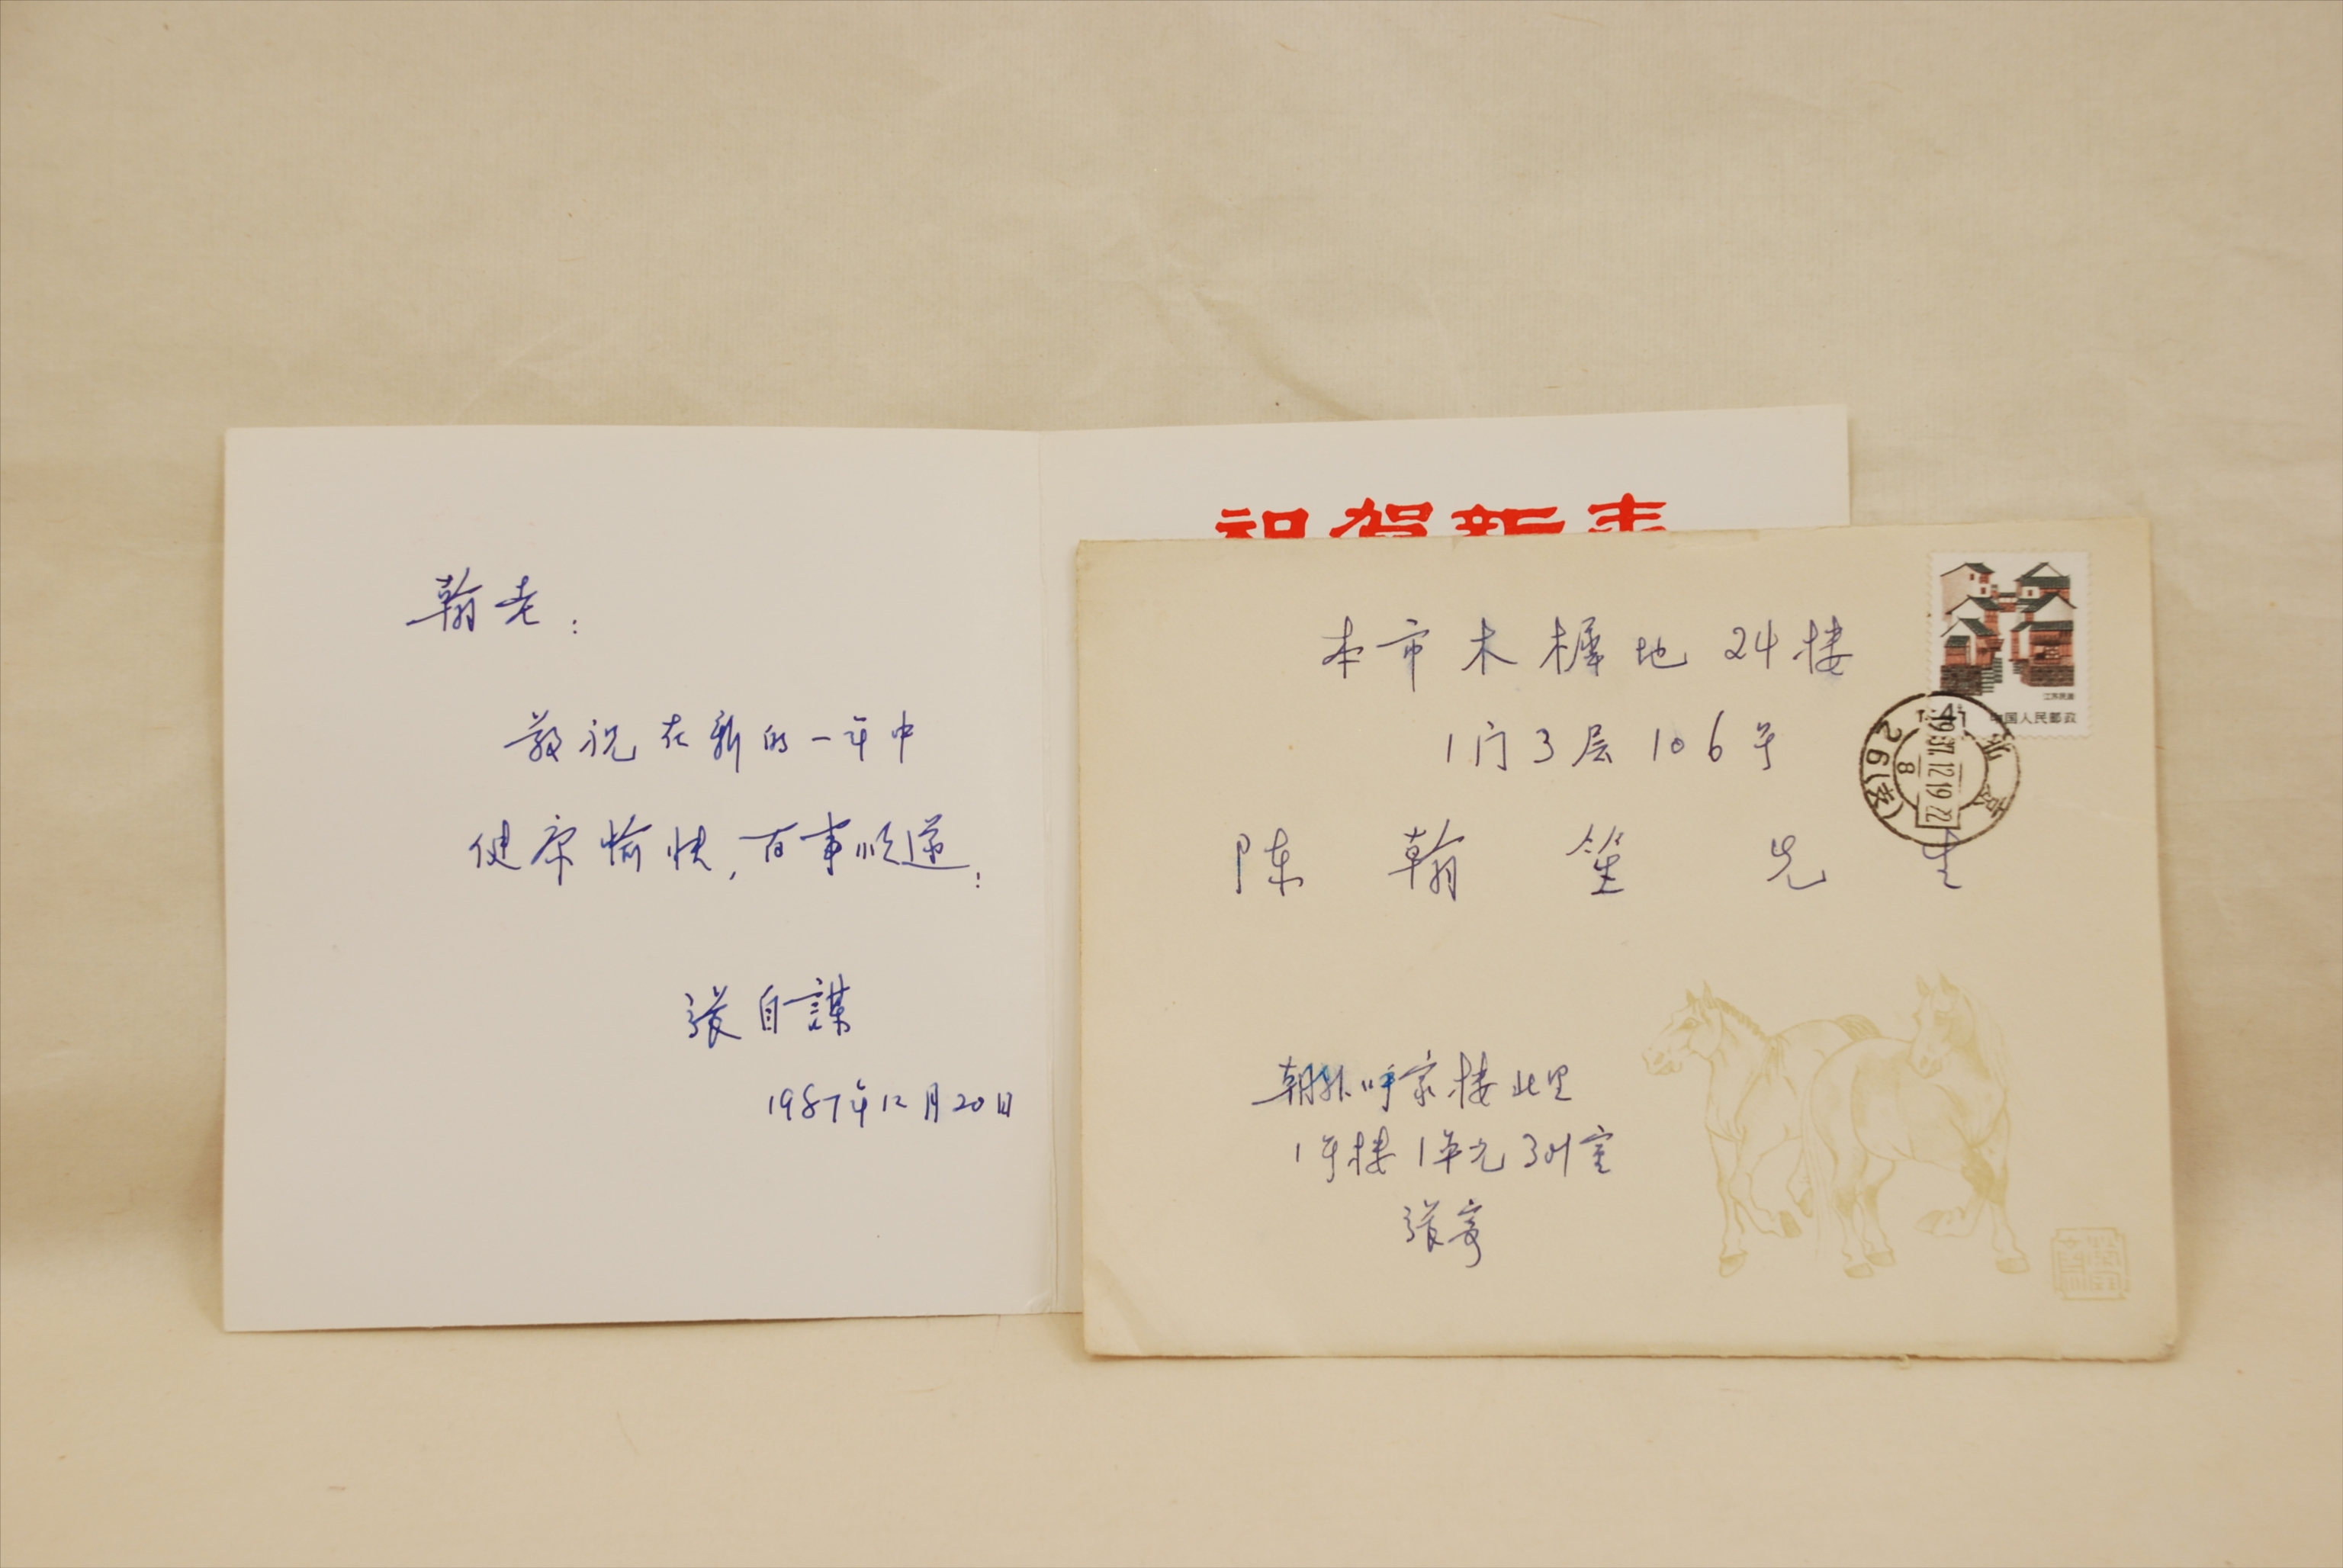 翰老：
敬祝在新的一年中
健康愉快，百事顺遂！
張自謀
1987年12月20日
祝贺新春
本市木樨地24楼
1门3层106号
陈翰笙先生
朝外呼家楼北里
1号楼1单元301室
張寄
江苏民居
中国人民邮政
北京
1987.12.19.22
8
26(支)